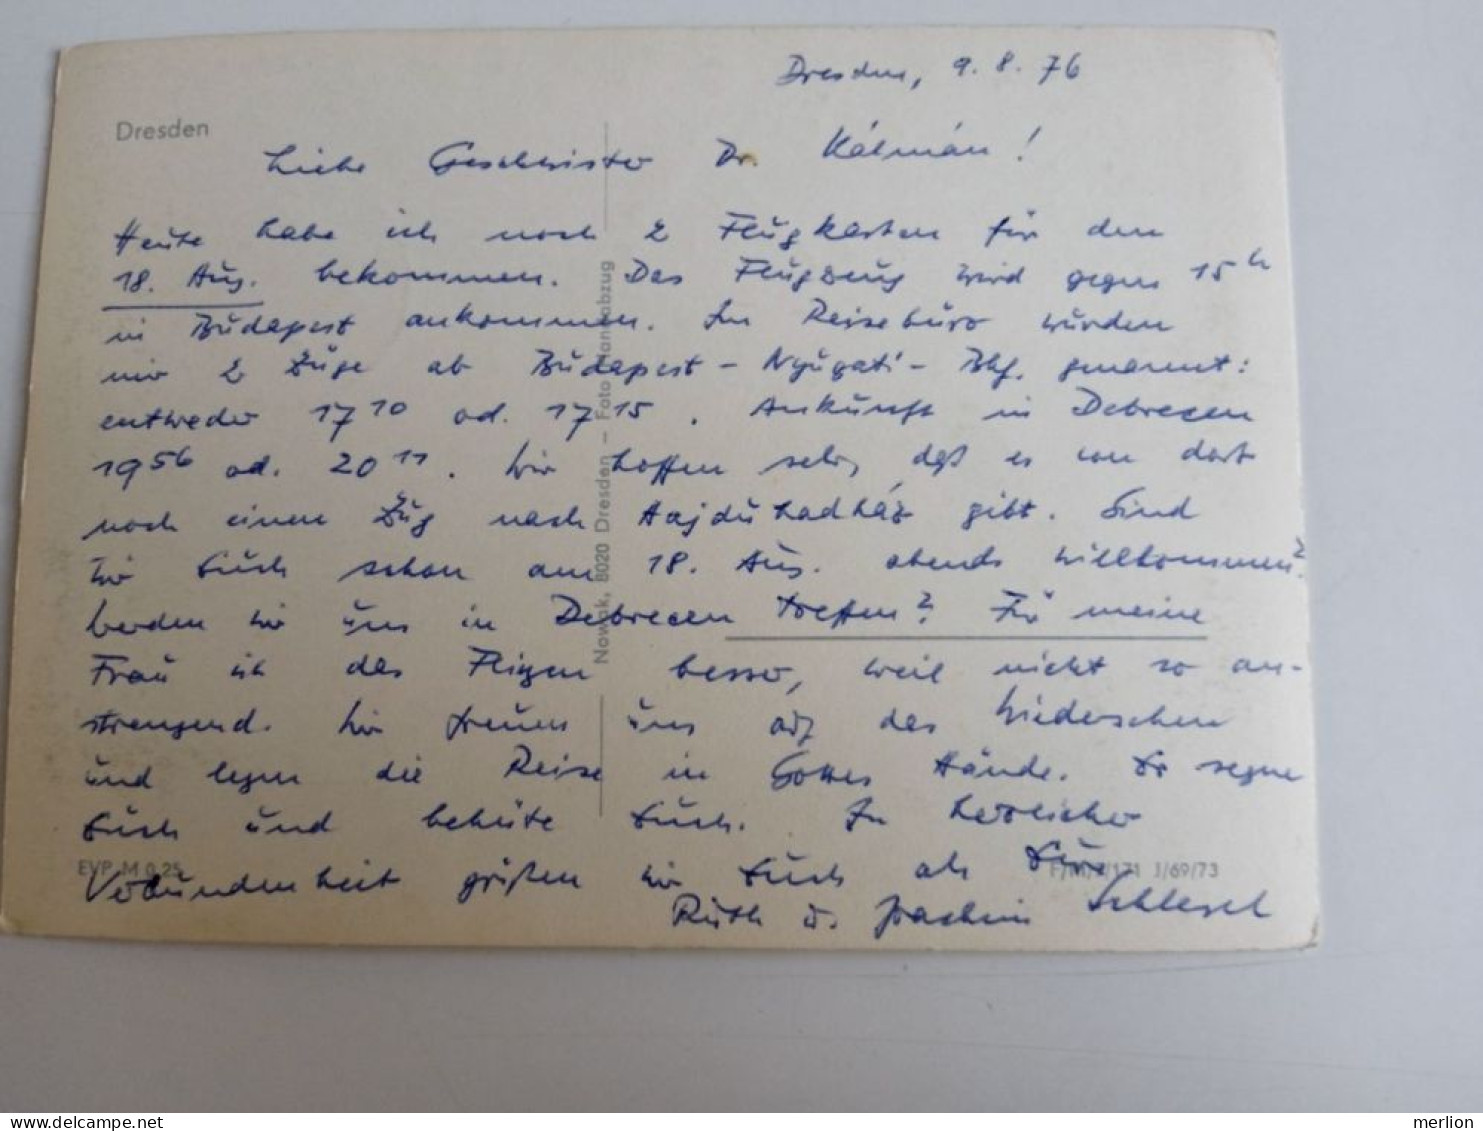 Dresden, 9. 8. 76
Dresden
Liebe Geschwister Dr. Kálmán!
Heute habe ich noch 2 Flugkarten für den
18. Aug. bekommen. Das Flugzeug wird gegen 15 h
in Budapest ankommen. Im Reisebüro wurden
mir 2 Züge ab Budapest - Nyugati - Bhf. genannt:
entweder 17 10 od. 17 15. Ankunft in Debrecen
19 56 od. 20 11. Wir hoffen sehr, daß es von dort
noch einen Zug nach Hajdúhadház gibt. Sind
wir Euch schon am 18. Aug. abends willkommen?
Werden wir uns in Debrecen treffen? Für meine
Frau ist das Fliegen besser, weil nicht so an-
strengend. Wir freuen uns auf das Wiedersehen
und legen die Reise in Gottes Hände. Er segne
Euch und behüte Euch. In herzlicher
Verbundenheit grüßen wir Euch als Eure
Ruth u. Joachim Schlegel
EVP M 0,25
1/69/73
Nowak, 8020 Dresden - Foto Handabzug
merlion